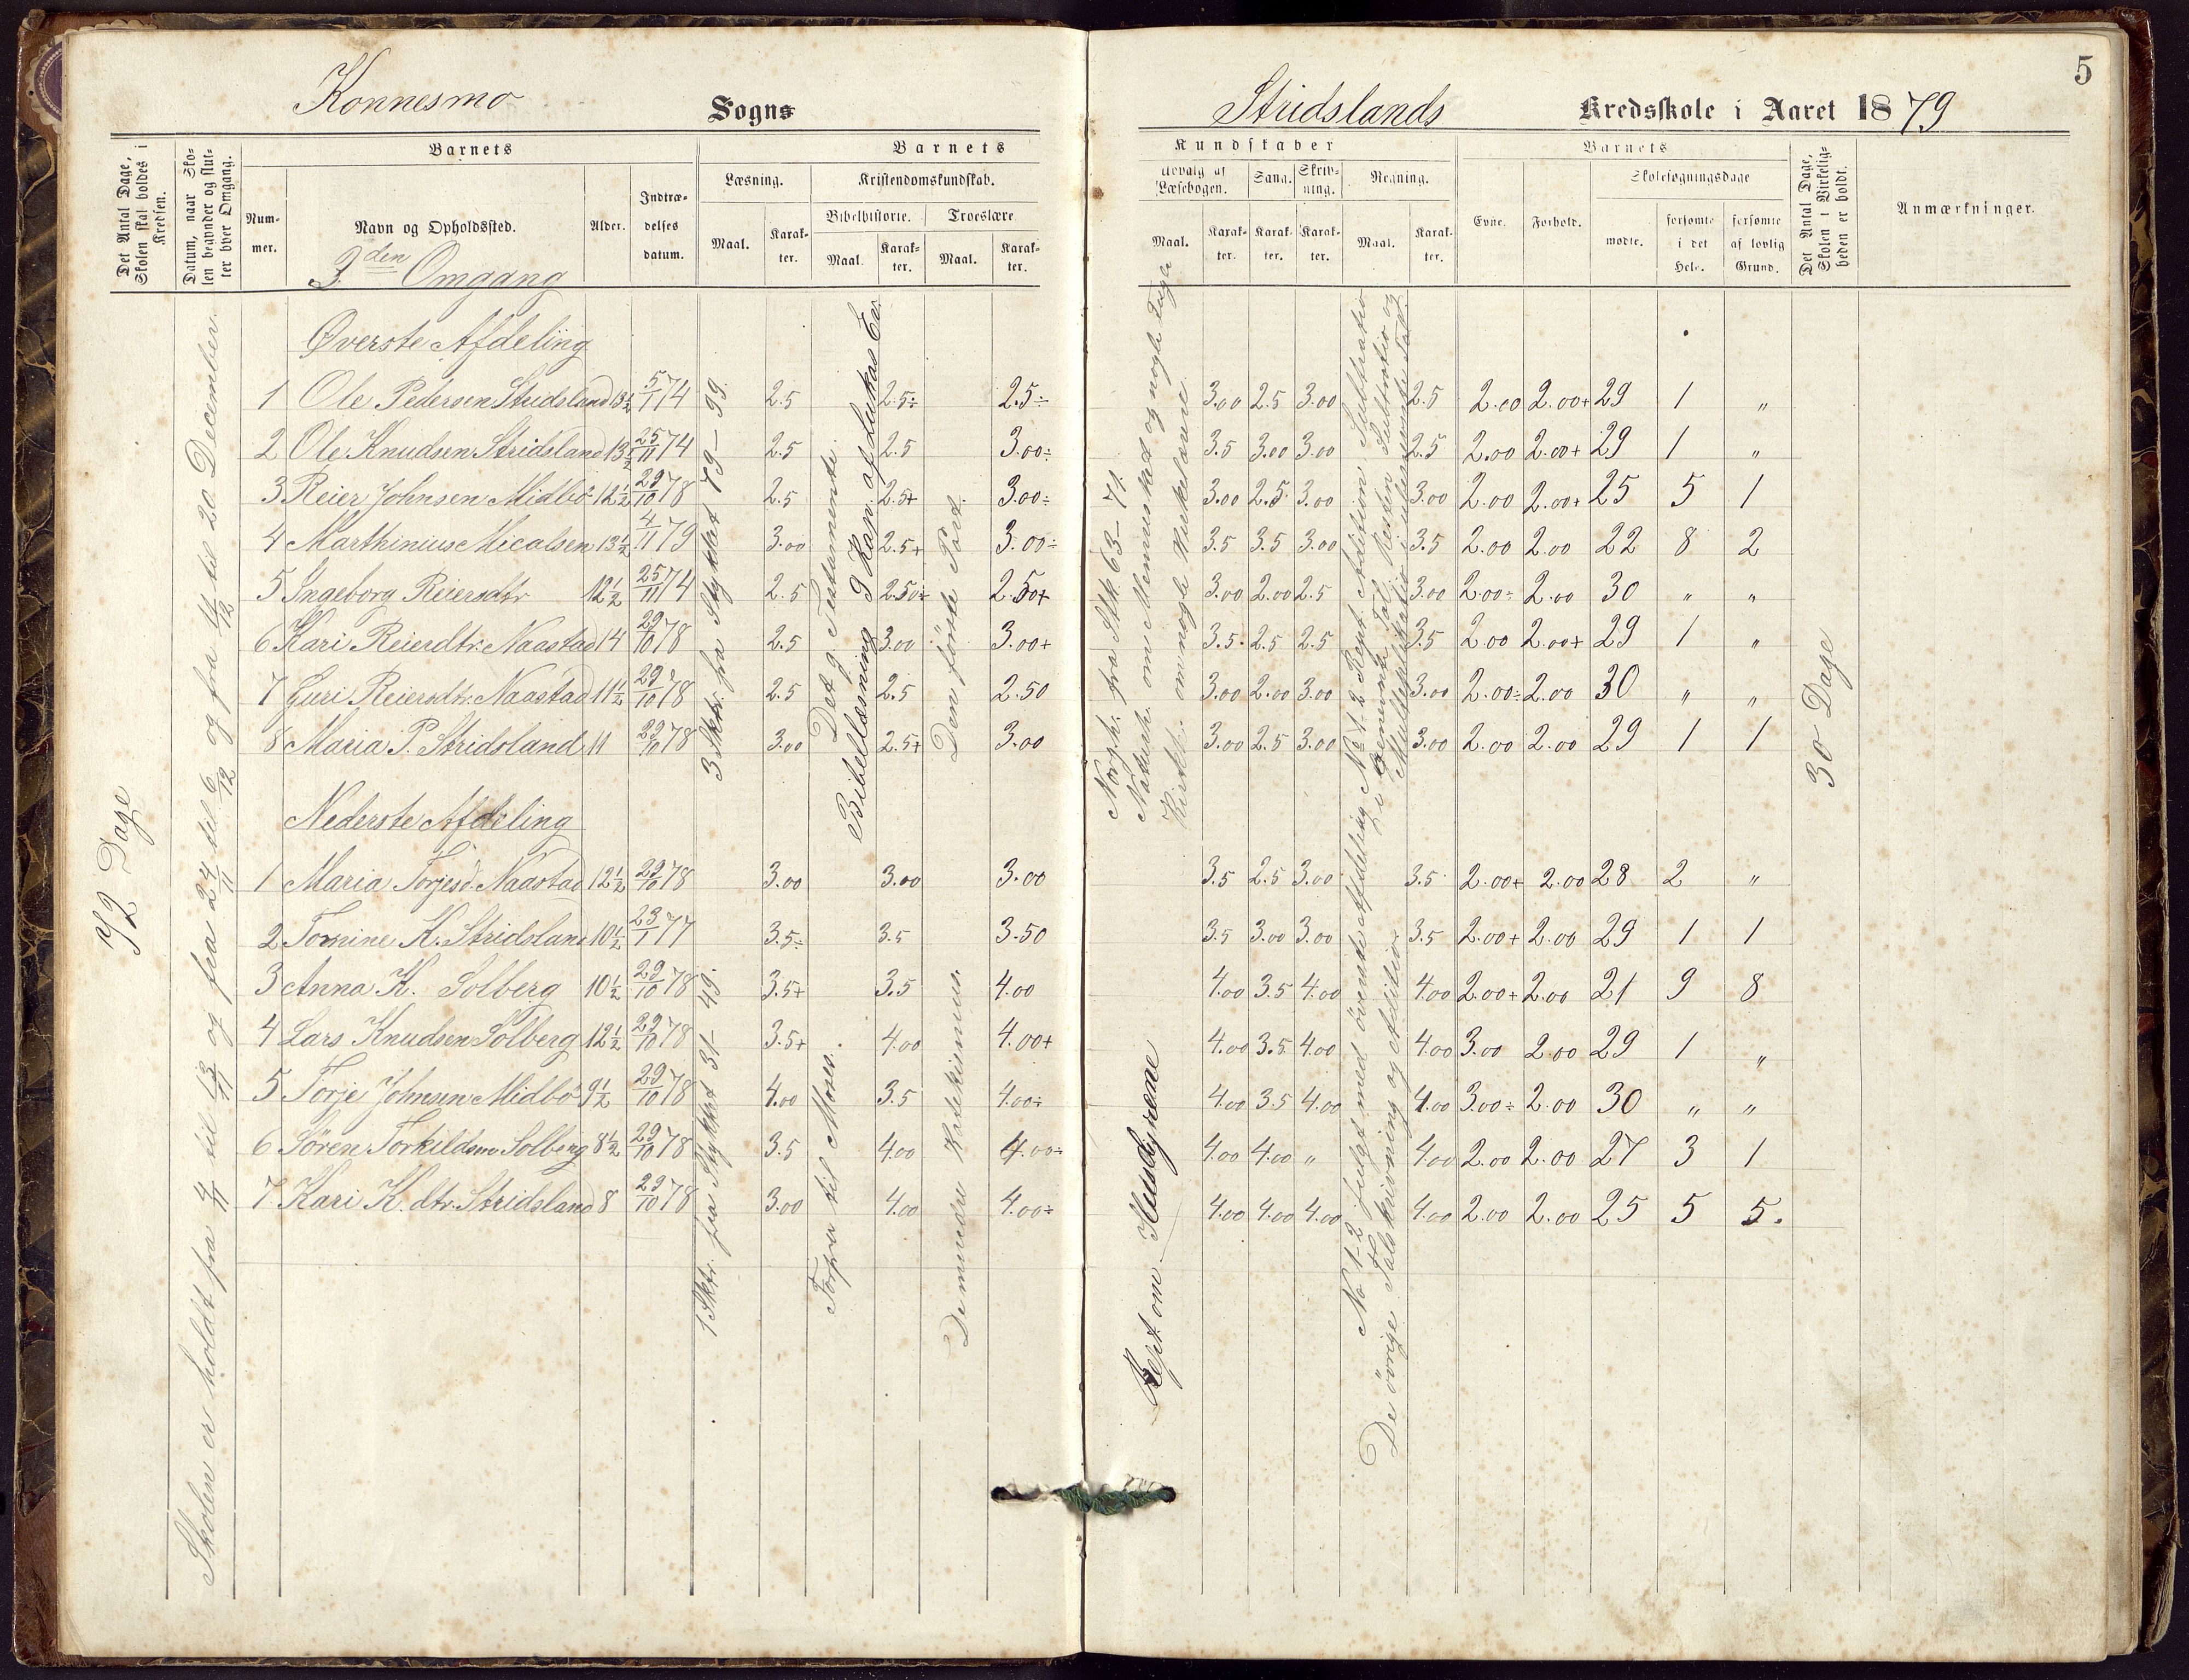 5
Konnesmo Sogns Stridslands Kredsskole i Aaret 1879
Det Antal Dage, Skolen skal holdes i Kredsen.
Datum, naar Skolen begynder og slutter hver Omgang.
Barnets
Nummer.
Navn og Opholdssted.
Alder.
Indtrædelses datum.
Barnets Kundskaber
Læsning.
Maal.
Karakter.
Kristendomskundskab.
Bibelhistorie.
Maal.
Karakter.
Troeslære
Maal.
Karakter.
Udvalg af Læsebogen.
Maal.
Karakter.
Sang.
Karakter.
Skrivning.
Karakter.
Regning.
Maal.
Karakter.
Barnets
Evne.
Forhold.
Skolesøgningsdage
mødte.
forsømte i det Hele.
forsømte af lovlig Grund.
Det Antal Dage, Skolen i Virkeligheden er holdt.
Anmærkninger.
3den Omgang
Øverste Afdeling
1 Ole Pedersen Stridsland 13½ 5/1 74 2.5 2.5÷ 2.5÷ 3.00 2.5 3.00 2.5 2.00 2.00+ 29 1 "
2 Ole Knudsen Stridsland 13½ 25/11 74 2.5 2.5 3.00÷ 3.5 3.00 3.00 2.5 2.00 2.00+ 29 1 "
3 Reier Johnsen Midbö 12½ 29/10 78 2.5 2.5+ 3.00÷ 3.00 2.5 3.00 3.00 2.00 2.00+ 25 5 1
4 Marthinius Micalsen 13½ 4/11 79 3.00 2.5+ 3.00÷ 3.5 3.5 3.00 3.5 2.00 2.00 22 8 2
5 Ingeborg Reiersdtr 12½ 25/11 74 2.5 2.50÷ 2.50+ 3.00 2.00 2.5 3.00 2.00÷ 2.00 30 " "
6 Kari Reierdtr. Naastad 14 29/10 78 2.5 3.00 3.00+ 3.5 2.5 2.5 3.5 2.00 2.00+ 29 1 "
7 Guri Reiersdtr. Naastad 11½ 29/10 78 2.5 2.5 2.50 3.00 2.00 3.00 3.00 2.00÷ 2.00 30 " "
8 Maria P. Stridsland 11 29/10 78 3.00 2.5+ 3.00 3.00 2.5 3.00 3.00 2.00 2.00 29 1 1
Nederste Afdeling
1 Maria Torjesd. Naastad 12½ 29/10 78 3.00 3.00 3.00 3.5 2.5 3.00 3.5 2.00+ 2.00 28 2 "
2 Tomine K. Stridsland 10½ 23/1 77 3.5÷ 3.5 3.50 3.5 3.00 3.00 3.5 2.00+ 2.00 29 1 1
3 Anna K. Solberg 10½ 29/10 78 3.5+ 3.5 4.00 4.00 3.5 4.00 4.00 2.00+ 2.00 21 9 8
4 Lars Knudsen Solberg 12½ 29/10 78 3.5+ 4.00 4.00+ 4.00 3.5 4.00 4.00 3.00 2.00 29 1 "
5 Torje Johnsen Midbö 9½ 29/10 78 4.00 3.5 4.00÷ 4.00 3.5 4.00 4.00 3.00÷ 2.00 30 " "
6 Sören Torkildsen Solberg 8½ 29/10 78 3.5 4.00 4.00÷ 4.00 4.00 " 4.00 2.00 2.00 27 3 1
7 Kari K. dtr. Stridsland 8 29/10 78 3.00 4.00 4.00÷ 4.00 4.00 4.00 4.00 2.00 2.00 25 5 5.
72 Dage
Skolen er holdt fra 4/11 til 13/11 og fra 24/11 til 6/12 og fra til 20 December.
3 Sktr. fra Stykket 79-99.
1 Sktr. fra Stykket 31-49.
Det g. Testamente.
Bibellæsning 9 Kap. af Lukas Ev.
Forfra til Moses.
Den förste Part.
De mindre Katekismus.
Norgh. fra Stk 63-71.
Naturh. om Mennesket og nogle Fugle
Kirkh. om nogle Kirkelærere
Rept om Husdyrene
No 1-2 Rept Addition Subtratio
i Benevnte Tal. Resten Subtratio og
Multiplikatio i ubenevnte Tal.
No 1-2 fulgt med överste Afdeling
De övrige Talskrivning og Addition
30 Dage